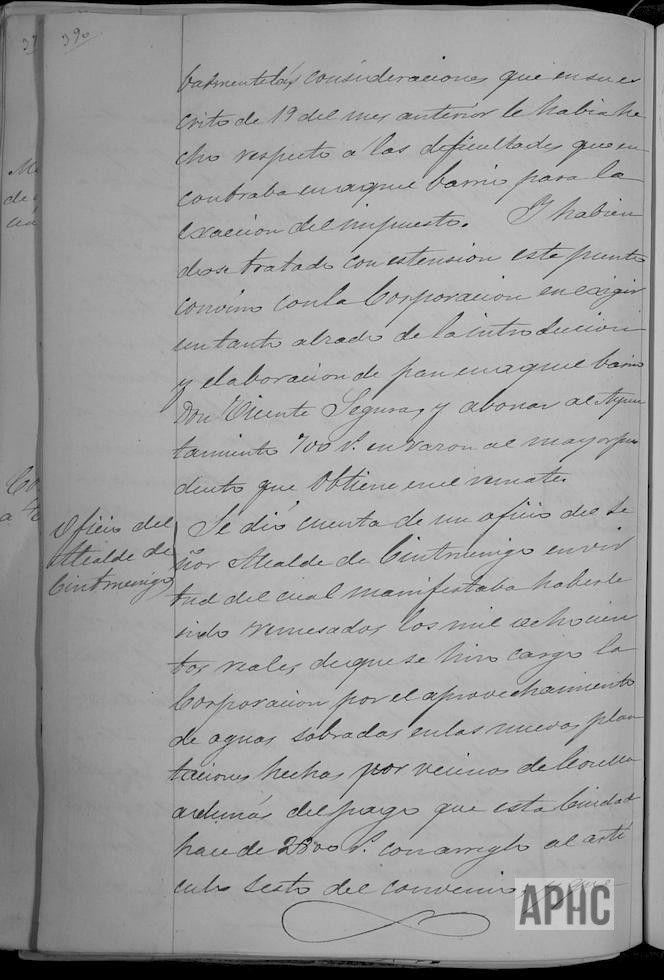 390
balmente las consideraciones que en su es
crito de 19 del mes anterior le habia he
cho respecto a las dificultades que en
contraba en aquel barrio para la
exaccion del impuesto. Y habien
dose tratado con estension este punto
convino con la Corporacion en exigir
un tanto alzado de la introduccion
y elaboracion de pan en aquel barrio
Don Vicente Segura, y abonar al Ayun
tamiento 700 r.s en razon al mayor pro
ducto que obtiene en el remate.
Oficio del
Alcalde de
Cintruenigo
Se dió cuenta de un oficio del Se
ñor Alcalde de Cintruenigo en vir
tud del cual manifestaba haberle
sido remesados los mil ochocien
tos reales de que se hizo cargo la
Corporacion por el aprovechamiento
de aguas sobradas en las nuevas plan
taciones hechas por vecinos de Corella
ademas del pago que esta Ciudad
hace de 2800 r.s con arreglo al arti
culo sesto del convenio, y que
APHC